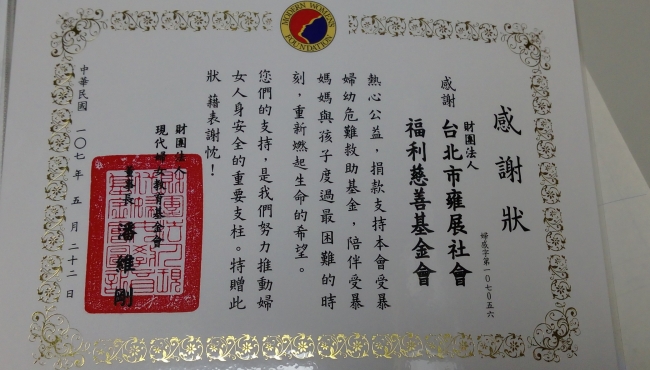 MODERN WOMEN'S FOUNDATION
感謝狀
婦感字第一〇七〇五六
感謝
財團法人
台北市雍展社會
福利慈善基金會
熱心公益，捐款支持本會受暴
婦幼危難救助基金，陪伴受暴
媽媽與孩子度過最困難的時
刻，重新燃起生命的希望。
您們的支持，是我們努力推動婦
女人身安全的重要支柱。特贈此
狀 藉表謝忱！
財團法人
現代婦女教育基金會
董事長 潘維剛
中華民國一〇七年五月二十二日